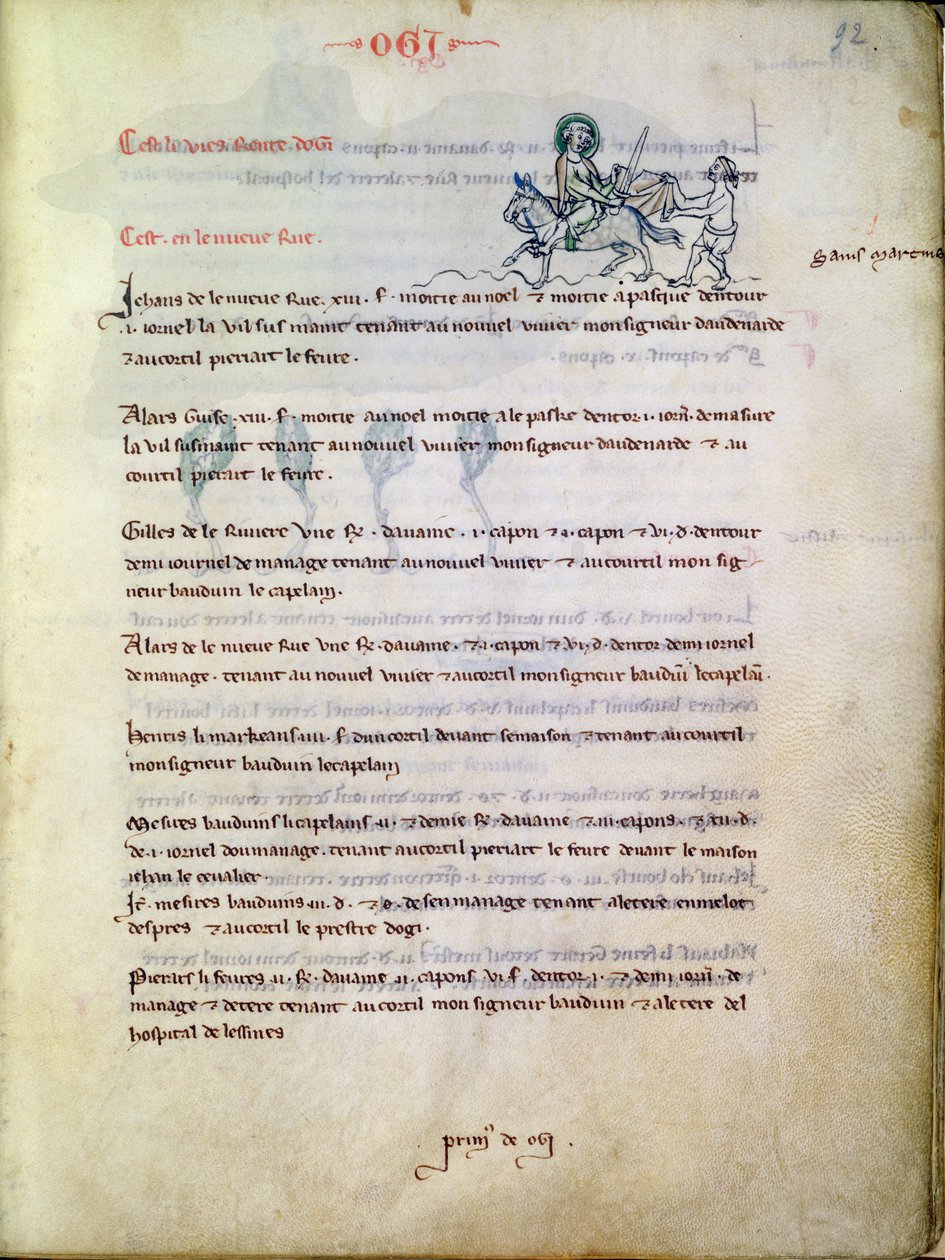 OGI
92
Cest li vies Rente dogi
Cest . en le nueue Rue .
Sains martins
Jehans de le nueue Rue . xiii . s̃ . moitie au noel ⁊ moitie a pasque dentour
.i. iornel la vil sus maint tenant au nouuel viuier monsigneur daudenarde
⁊ au cortil pierart le feure .
Alars Guise .xiii. s̃ . moitie au noel moitie a le paske dentor .i. iorñ . de masure
la vil susmaint tenant au nouuel viuier monsigneur daudenarde ⁊ au
courtil pierart le feure .
Gilles de le Riuiere vne R̃ . dauaine . i . capon ⁊ . capon ⁊ vi . d . dentour
demi iournel de manage tenant au nouuel viuier ⁊ au courtil mon sig
neur bauduin le capelain .
Alars de le nueue Rue vne R̃ . dauaine . ⁊ .i. capon ⁊ vi . d . dentor demi iornel
de manage . tenant au nouuel viuier ⁊ au cortil monsigneur bauduĩ le capelaĩ .
Henris li markeans .iiii . s̃ dun cortil deuant se maison ⁊ tenant au courtil
monsigneur bauduin le capelain
Mesires bauduins li capelains .ii. ⁊ demie R̃ . dauaine ⁊ iii . capons . ⁊ . d .
de .i. iornel dou manage . tenant au cortil pierart le feure deuant le maison
iehan le ceualier .
It̃ . mesires bauduins .iii. d . ⁊ o . de sen manage tenant a le tere enmelot
despres ⁊ au cortil le prestre dogi .
Pierars li feures .ii . R̃ . dauaine .ii . capons vi s̃ dentor .i . ⁊ demi iorñ . de
manage ⁊ de tere tenant au cortil monsigneur bauduin ⁊ a le tere del
hospital de lessines
de ogi .